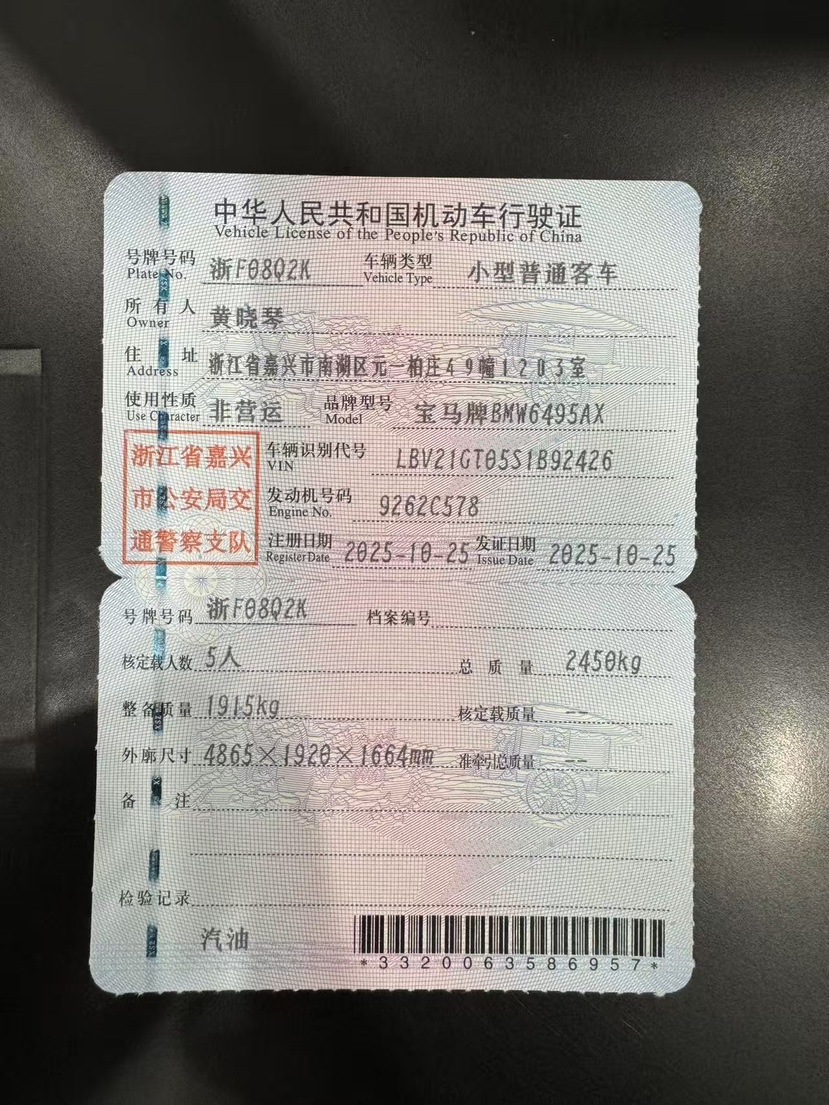 中华人民共和国机动车行驶证
Vehicle License of the People's Republic of China
号牌号码 浙F08Q2K 车辆类型 小型普通客车
Plate No. Vehicle Type
所有人 黄晓琴
Owner
住址 浙江省嘉兴市南湖区元一柏庄49幢1203室
Address
使用性质 非营运 品牌型号 宝马牌BMW6495AX
Use Character Model
浙江省嘉兴
市公安局交
通警察支队
车辆识别代号 LBV21GT05S1B92426
VIN
发动机号码 9262C578
Engine No.
注册日期 2025-10-25 发证日期 2025-10-25
Register Date Issue Date
号牌号码 浙F08Q2K 档案编号
核定载人数 5人 总质量 2450kg
整备质量 1915kg 核定载质量 --
外廓尺寸 4865×1920×1664mm 准牵引总质量 --
备注
检验记录
汽油
*3320063586957*